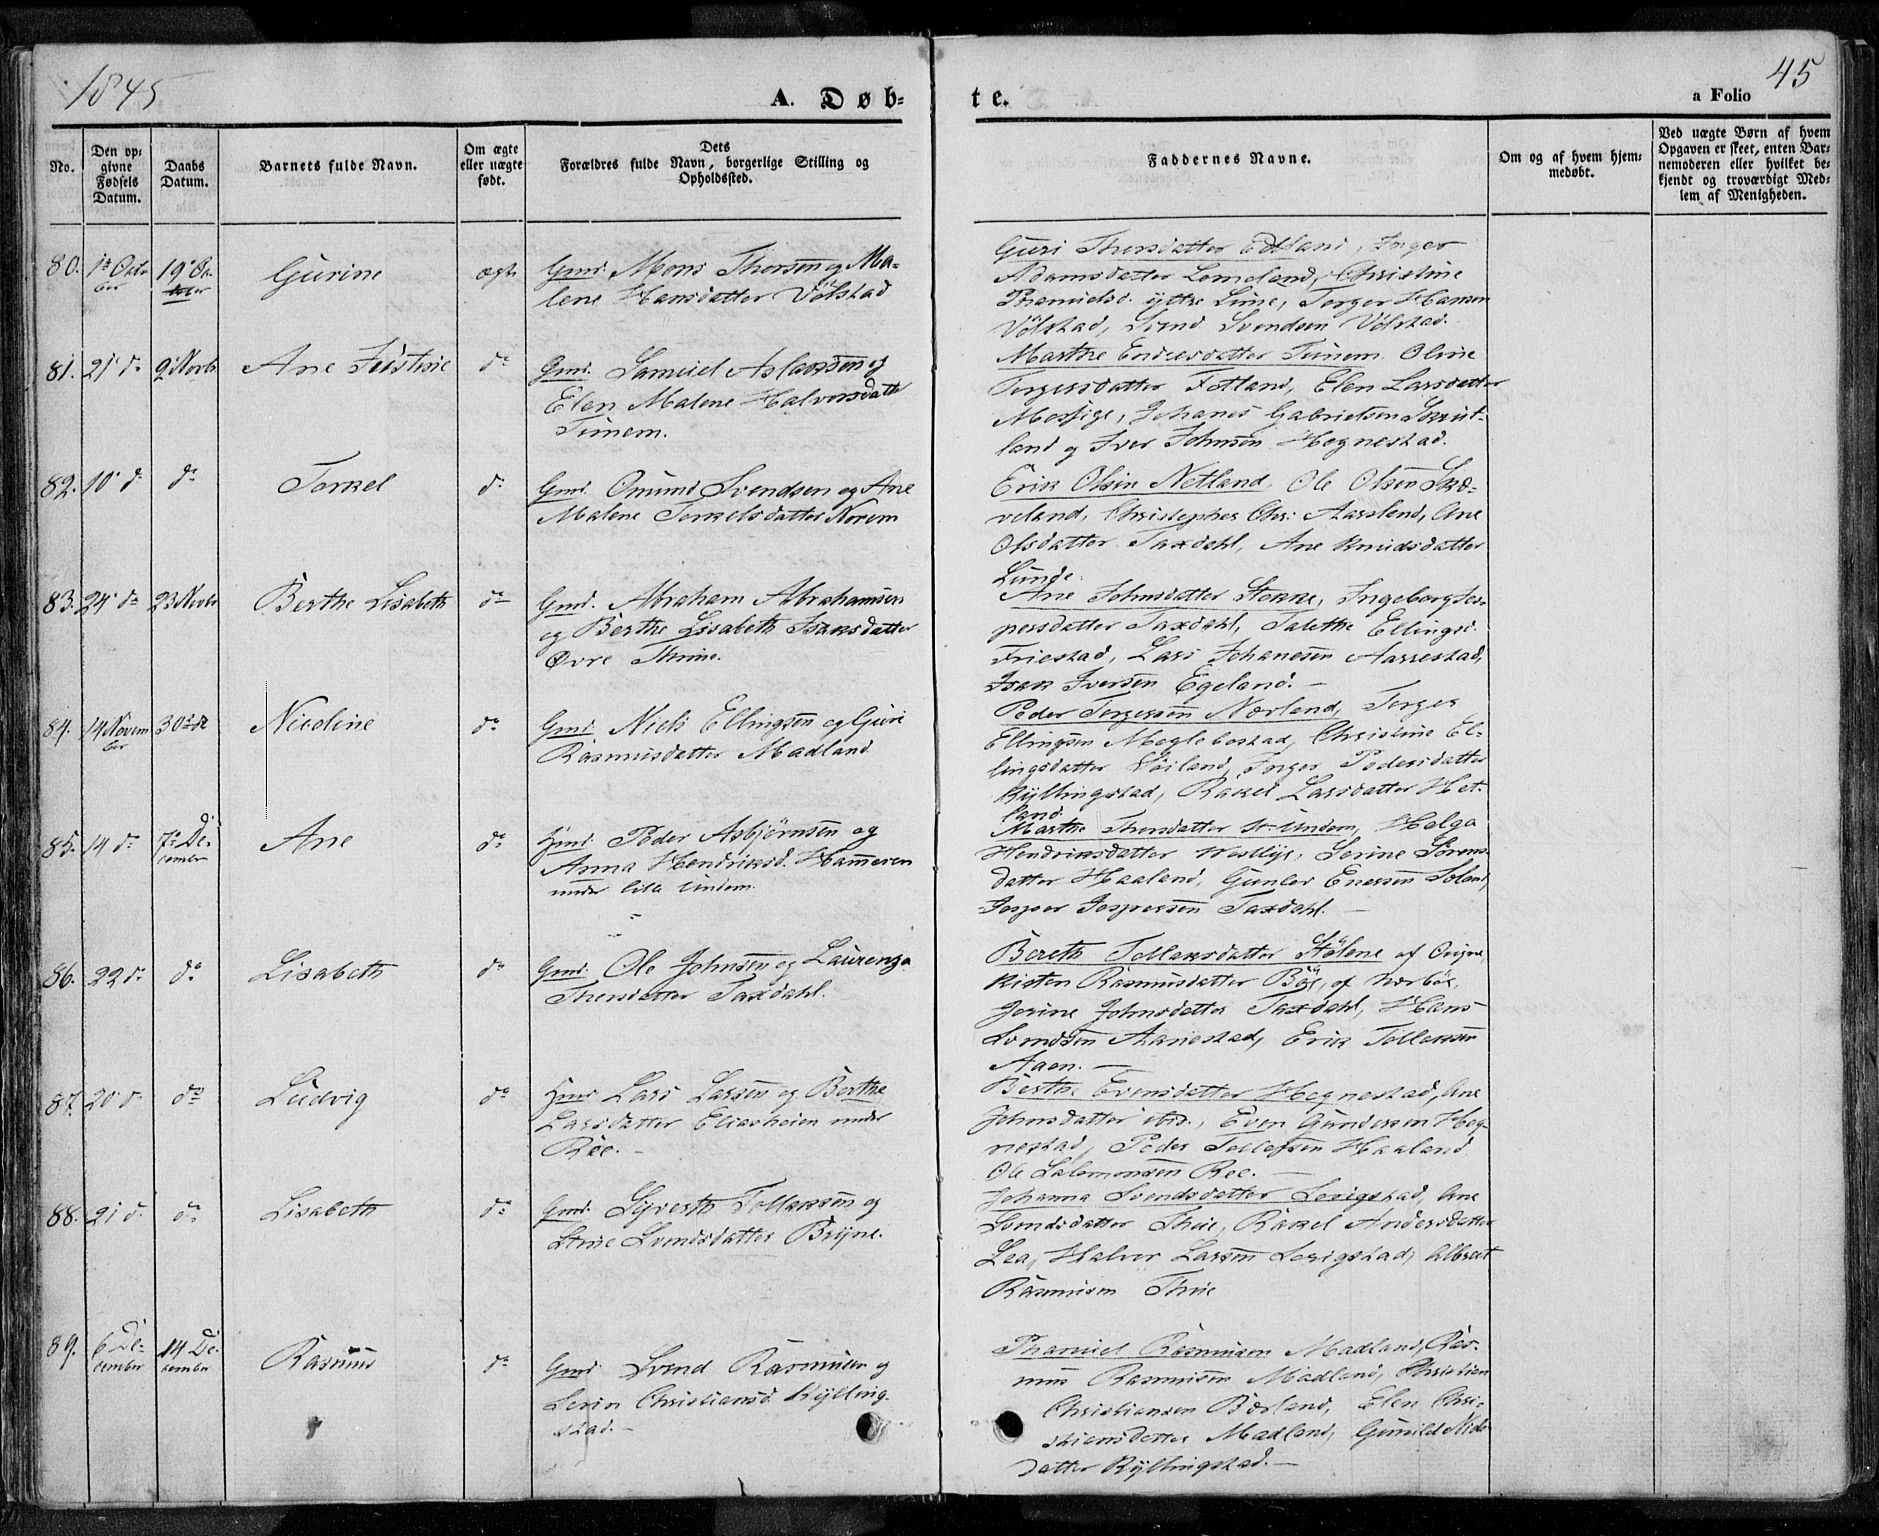 1845
A. Døb-
te.
a Folio 45
No.
Den op-
givne
Fødsels
Datum.
Daabs
Datum.
Barnets fulde Navn.
Om ægte
eller uægte
født.
Dets
Forældres fulde Navn, borgerlige Stilling og
Opholdssted.
Faddernes Navne.
Om og af hvem hjem-
medøbt.
Ved uægte Børn af hvem
Opgaven er skeet, enten Bar-
nemoderen eller hvilket be-
kjendt og troværdigt Med-
lem af Menigheden.
80. 1ste Octo
ber
19de Oc
tober
Gurine
ægte
Gmd. Mons Thorsen og Ma-
lene Hansdatter Vølstad
Guri Thorsdatter Edland, Inger
Adamsdatter Lomeland, Christine
Thamielsd. yttre Lime, Torger Hansen
Vølstad, Svend Svendsen Vølstad.
81. 21 do 9 Novb.
Ane Justine
do
Gmd. Samuel Aslaksen og
Elen Malene Halvorsdatt
Tunem.
Marthe Endresdatter Tunem. Oline
Torgersdatter Fotland, Elen Larsdatter
Mossige, Johanes Gabrielsen Skrut-
land og Iver Johnsen Hognestad.
82. 10 d. do
Torkel
do
Gmd. Omund Svendsen og Ane
Malene Torkelsdatter Norem
Erik Olsen Netland. Ole Olsen Skæ-
veland, Christopher Chr. Aarsland, Ane
Olsdatter Taxdahl, Ane Knudsdatter
Lunde.
83. 24 do 23 Novb.
Berthe Lisabeth
do
Gmd. Abraham Abrahamsen
og Berthe Lisabeth Isaksdatter
Øvre Thime.
Ane Johnsdatter Stokke, Ingeborg Jes-
persdatter Taxdahl, Talethe Ellingsd.
Friestad, Lars Johanesen Aarrestad,
Isak Iversen Egeland. —
84. 14 Novem
ber
30te do
Nicoline
do
Gmd. Niels Ellingsen og Guri
Rasmusdatter Madland
Peder Torgersen Nærland, Torger
Ellingsen Moglebostad, Christine El-
lingsdatter Høiland, Inger Pedersdatter
Kyllingstad, Rakel Larsdatter Het-
land.
85. 14 do 7de De-
cember
Ane
do
Hmd. Peder Asbjørnsen og
Anna Hendriksd. Hameren
under lille Undem.
Marthe Thorsdatter St. Undem, Helga
Hendriksdatter Westlye, Serine Sørens
datter Haaland, Gunlev Enersen Soland,
Jesper Jespersen Taxdahl. —
86. 22 do do
Lisabeth
do
Gmd. Ole Johnsen og Laurenza
Thorsdatter Taxdahl.
Bereth Tollaksdatter Stølene af Ougne,
Kisten Rasmusdatter Bøe, af Nærbøe,
Jorine Johnsdatter Taxdahl, Hans
Svendsen Aanestad, Erik Tollaksen
Aaen. —
87. 20 d do
Ludvig
do
Hmd Lars Larsen og Berthe
Larsdatter Eliasheien under
Roe. —
Berthe Evensdatter Hognestad, Ane
Johnsdatter ibid., Even Gundersen Hog-
nestad, Peder Tollefsen Haaland
Ole Salomonsen Roe. —
88. 21 d. do
Lisabeth
do
Gmd. Syverth Tollaksen og
Stine Svendsdatter Bryne.
Johanna Svendsdatter Serigstad, Ane
Svendsdatter Thue, Rakel Andersdatter
Lea, Halvor Larsen Serigstad, Albret
Rasmusen Thue
89. 6 De-
cember
14 De
cember
Rasmus
do
Gmd. Svend Rasmusen og
Serin Christiansd. Kylling-
stad. —
Thamiel Rasmusen Madland, Ras-
mus Rasmusen Madland, Christian
Christiansen Børland, Elen Chri-
stiansdatter Madland, Gunild Niels
datter Kyllingstad. —